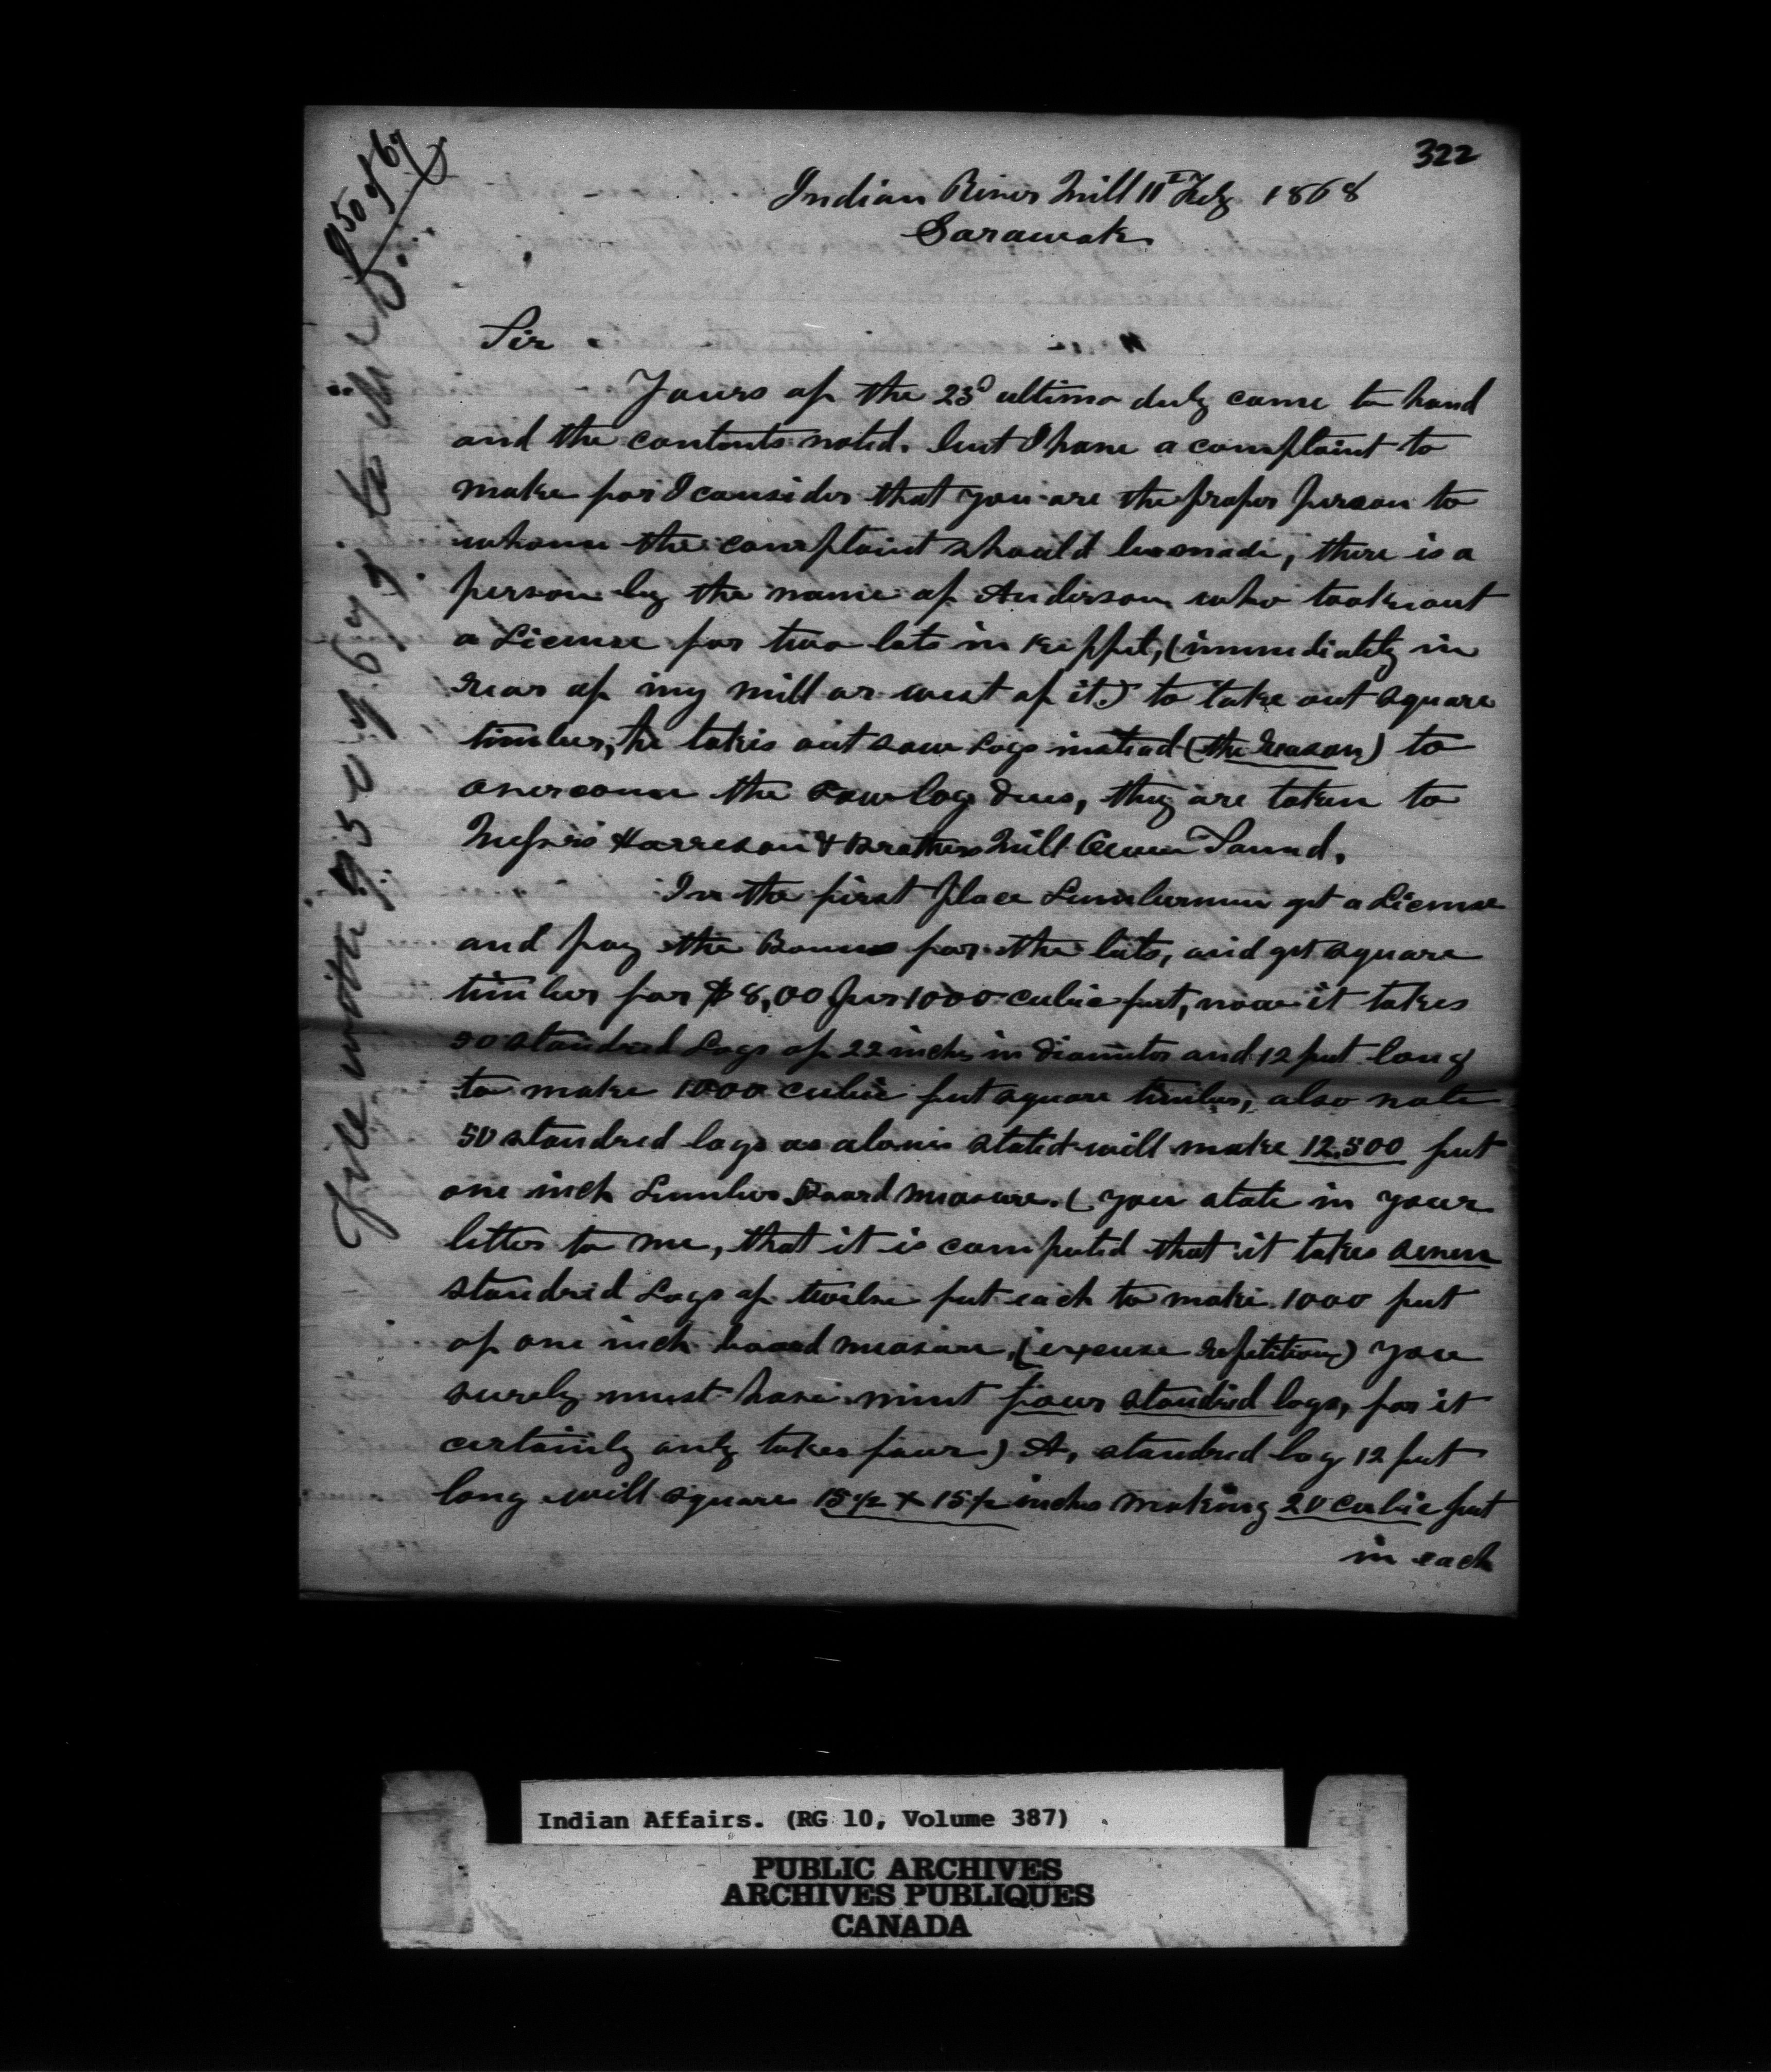 322
Indian River Mill 11th Feby 1868
Sarawak
Sir
Yours of the 23d ultimo duly came to hand
and the contents noted. but I have a complaint to
make for I consider that you are the proper person to
whome the complaint should be made, there is a
person by the name of Anderson who took out
a License for two lots in Keppel, (immediately in
rear of my mill or west of it.) to take out square
timber, he takes out saw Logs instead (the reason) to
overcome the saw log dues, they are taken to
Messrs Harreson & Brothers Mill Owen Sound.
In the first place Lumbermen get a License
and pay the Bonus for the lots, and get square
timber for $8,00 per 1000 cubic feet, now it takes
50 standred Logs of 22 inches in diameter and 12 feet long
to make 1000 cubic feet square timber, also note
50 standred logs as above stated will make 12.500 feet
one inch Lumber Board measure. (you state in your
letter to me, that it is computed that it takes seven
standred Logs of twelve feet each to make 1000 feet
of one inch board measure, (excuse repetition) you
surely must have ment four standred logs, for it
certainly only takes four) A, standred log 12 feet
long will square 15½ x 15½ inches making 20 cubic feet
in each
File with 950 of 67
950 of 67
Indian Affairs. (RG 10, Volume 387)
PUBLIC ARCHIVES
ARCHIVES PUBLIQUES
CANADA